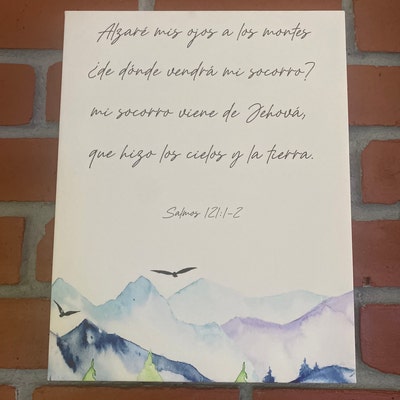 Alzaré mis ojos a los montes
¿de dónde vendrá mi socorro?
mi socorro viene de Jehová,
que hizo los cielos y la tierra.
Salmos 121:1-2